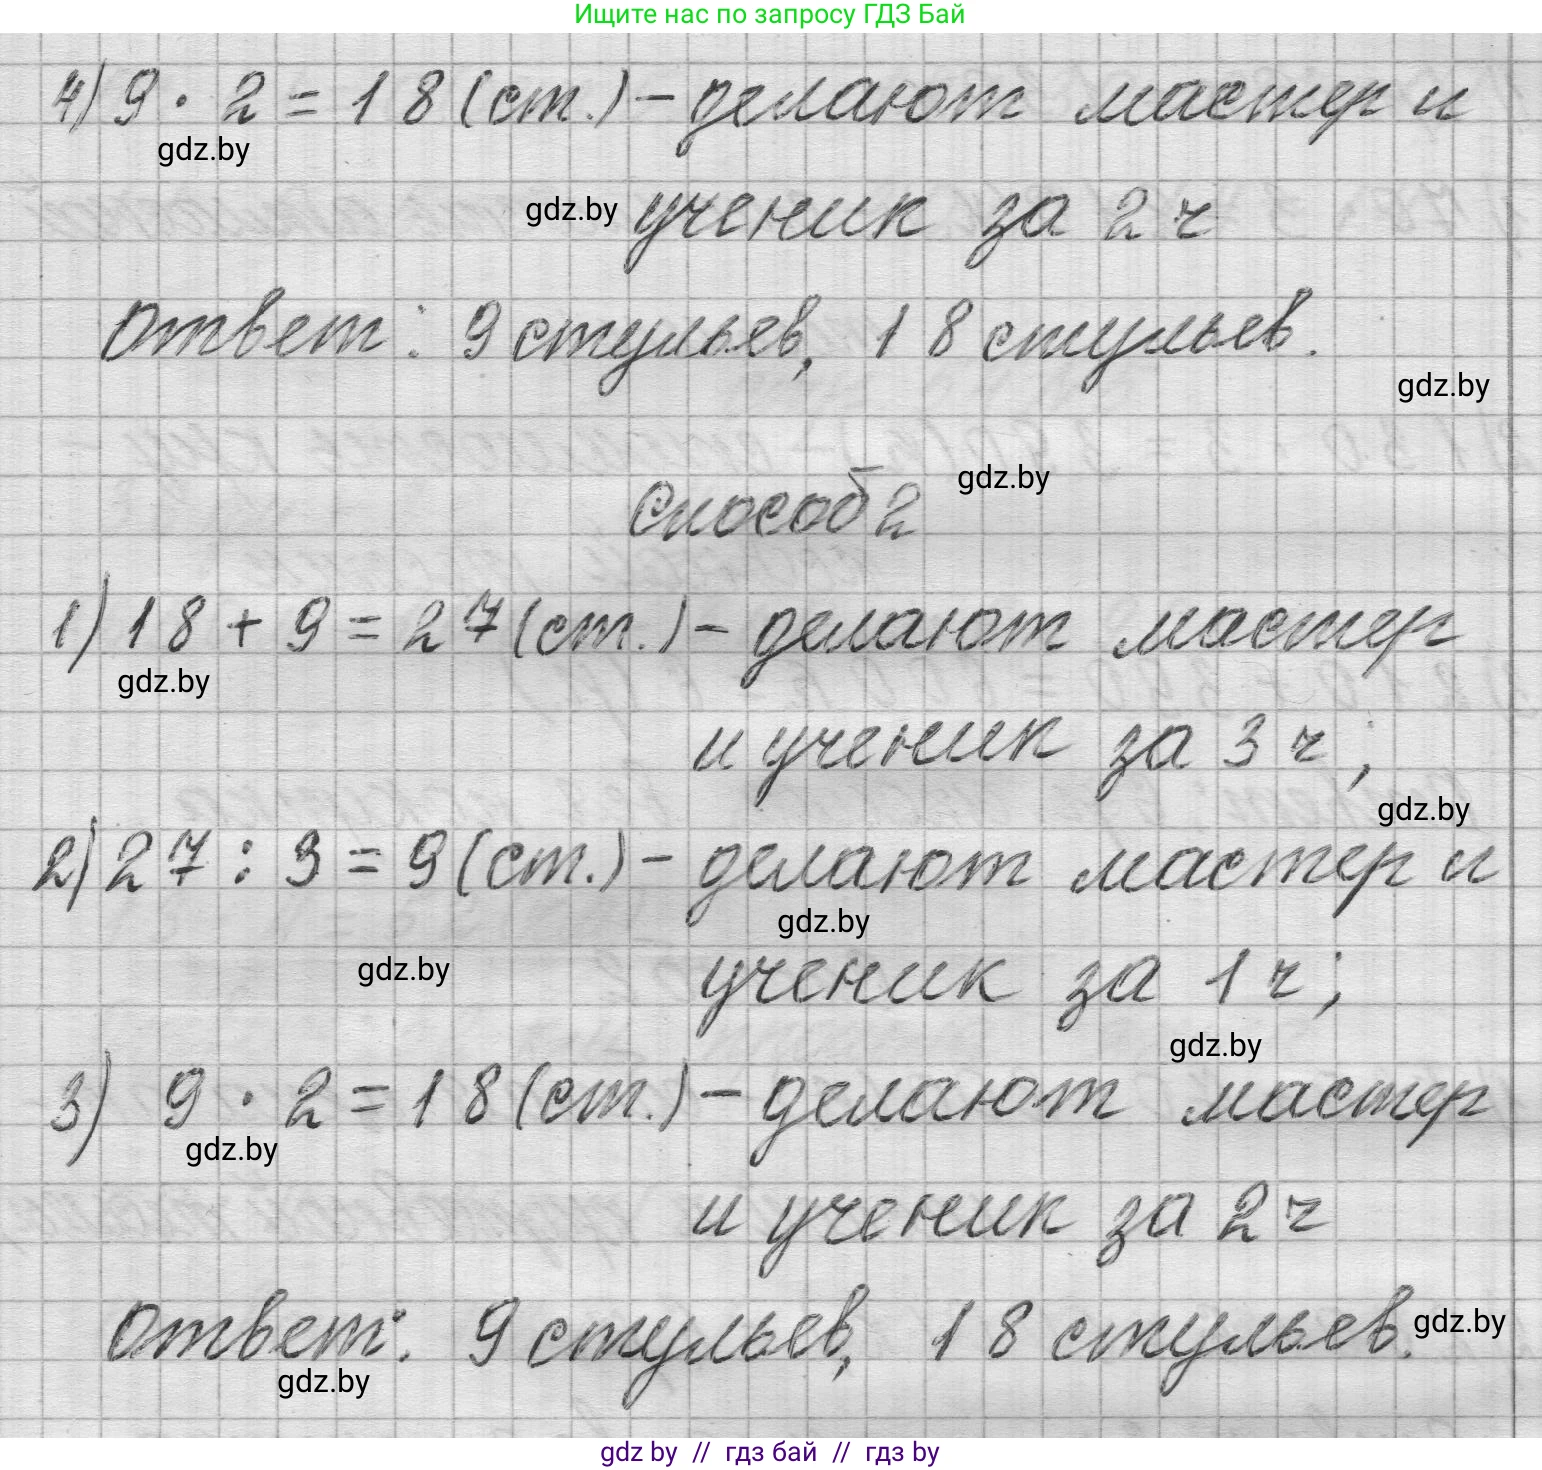 Ищите нас по запросу ГДЗ Бай
4) 9 · 2 = 18 (ст.) – делают мастер и
gdz.by
gdz.by ученик за 2 ч
Ответ: 9 стульев, 18 стульев.
gdz.by
Способ 2 gdz.by
1) 18 + 9 = 27 (ст.) – делают мастер
gdz.by
и ученик за 3 ч;
gdz.by
2) 27 : 3 = 9 (ст.) – делают мастер и
gdz.by
gdz.by ученик за 1 ч;
gdz.by
3) 9 · 2 = 18 (ст.) – делают мастер
gdz.by
и ученик за 2 ч
Ответ: 9 стульев, 18 стульев. gdz.by
gdz.by
gdz by // гдз бай // гдз by